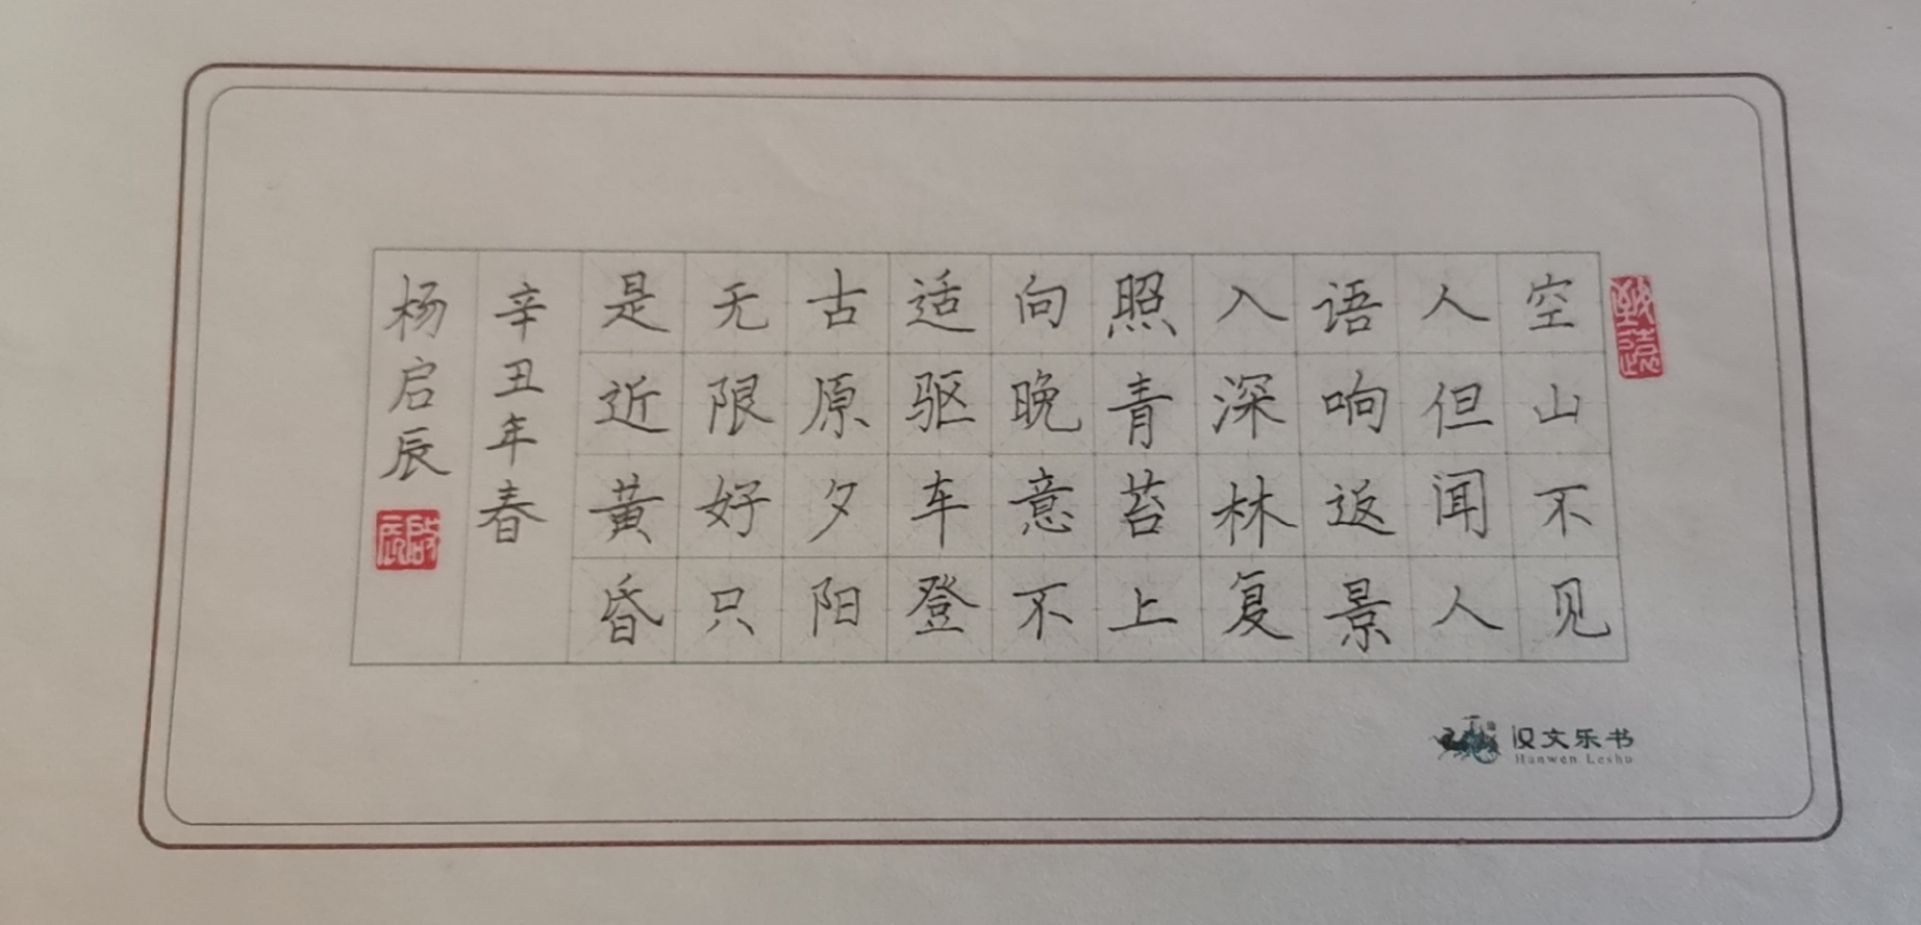 空山不见
人但闻人
语响返景
入深林复
照青苔上
向晚意不
适驱车登
古原夕阳
无限好只
是近黄昏
辛丑年春
杨启辰
致远
启辰
汉文乐书
Hanwen Leshu